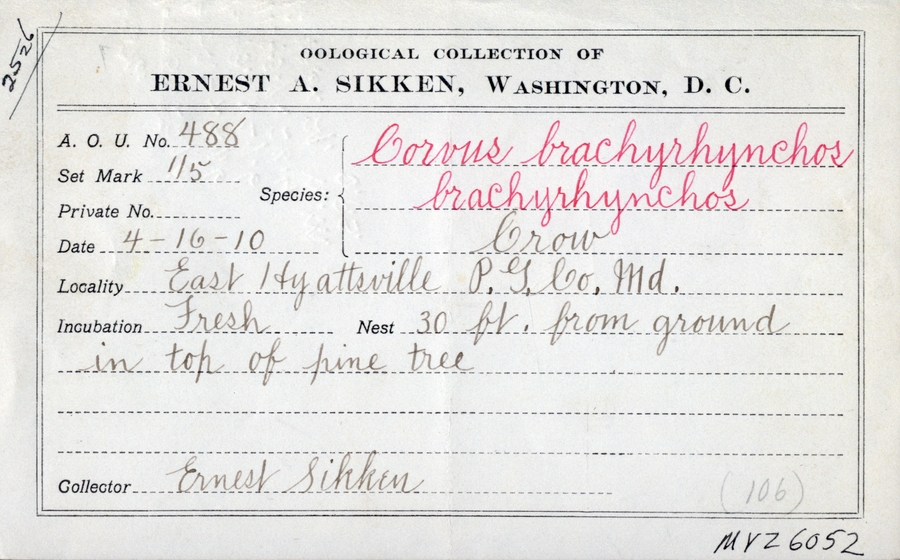 2526
OOLOGICAL COLLECTION OF
ERNEST A. SIKKEN, WASHINGTON, D. C.
A. O. U. No. 488
Set Mark 1/5
Private No.
Date 4-16-10
Species: Corvus brachyrhynchos
brachyrhynchos
Crow
Locality East Hyattsville P. G. Co. Md.
Incubation Fresh Nest 30 ft. from ground
in top of pine tree
Collector Ernest Sikken
(106)
MVZ 6052